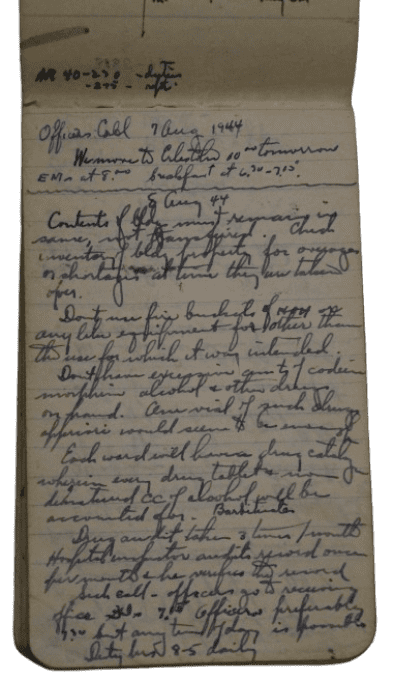 AR 40-270 - duties
-275 -
Officers Call 7 Aug 1944
We move to 10⁰⁰ tomorrow
EMs at 8⁰⁰ breakfast at 6:30-7:15.
8 Aug 44
Contents of bldg must remain in
same, not transferred. Check
inventory of bldg property for overages
or shortages at time they are taken
over.
Dont use fire buckets or
any like equipment for other than
the use for which it was intended.
Dont have excessive qnty of codeine
morphine alcohol & other drugs
on hand. One vial of such drugs
apiece would seem to be enough
Each ward will have a drug catalog
wherein every drug tablet & non
denatured cc of alcohol will be
accounted for. Barbiturates
Drug audit taken 3 times/month
Hospital inspector audits record once
per month & he verifies the record
Sick call - officers go to receiving
office 7:00 Officers preferably
7:30 but any time of day is possible
Duty hrs 8-5 daily